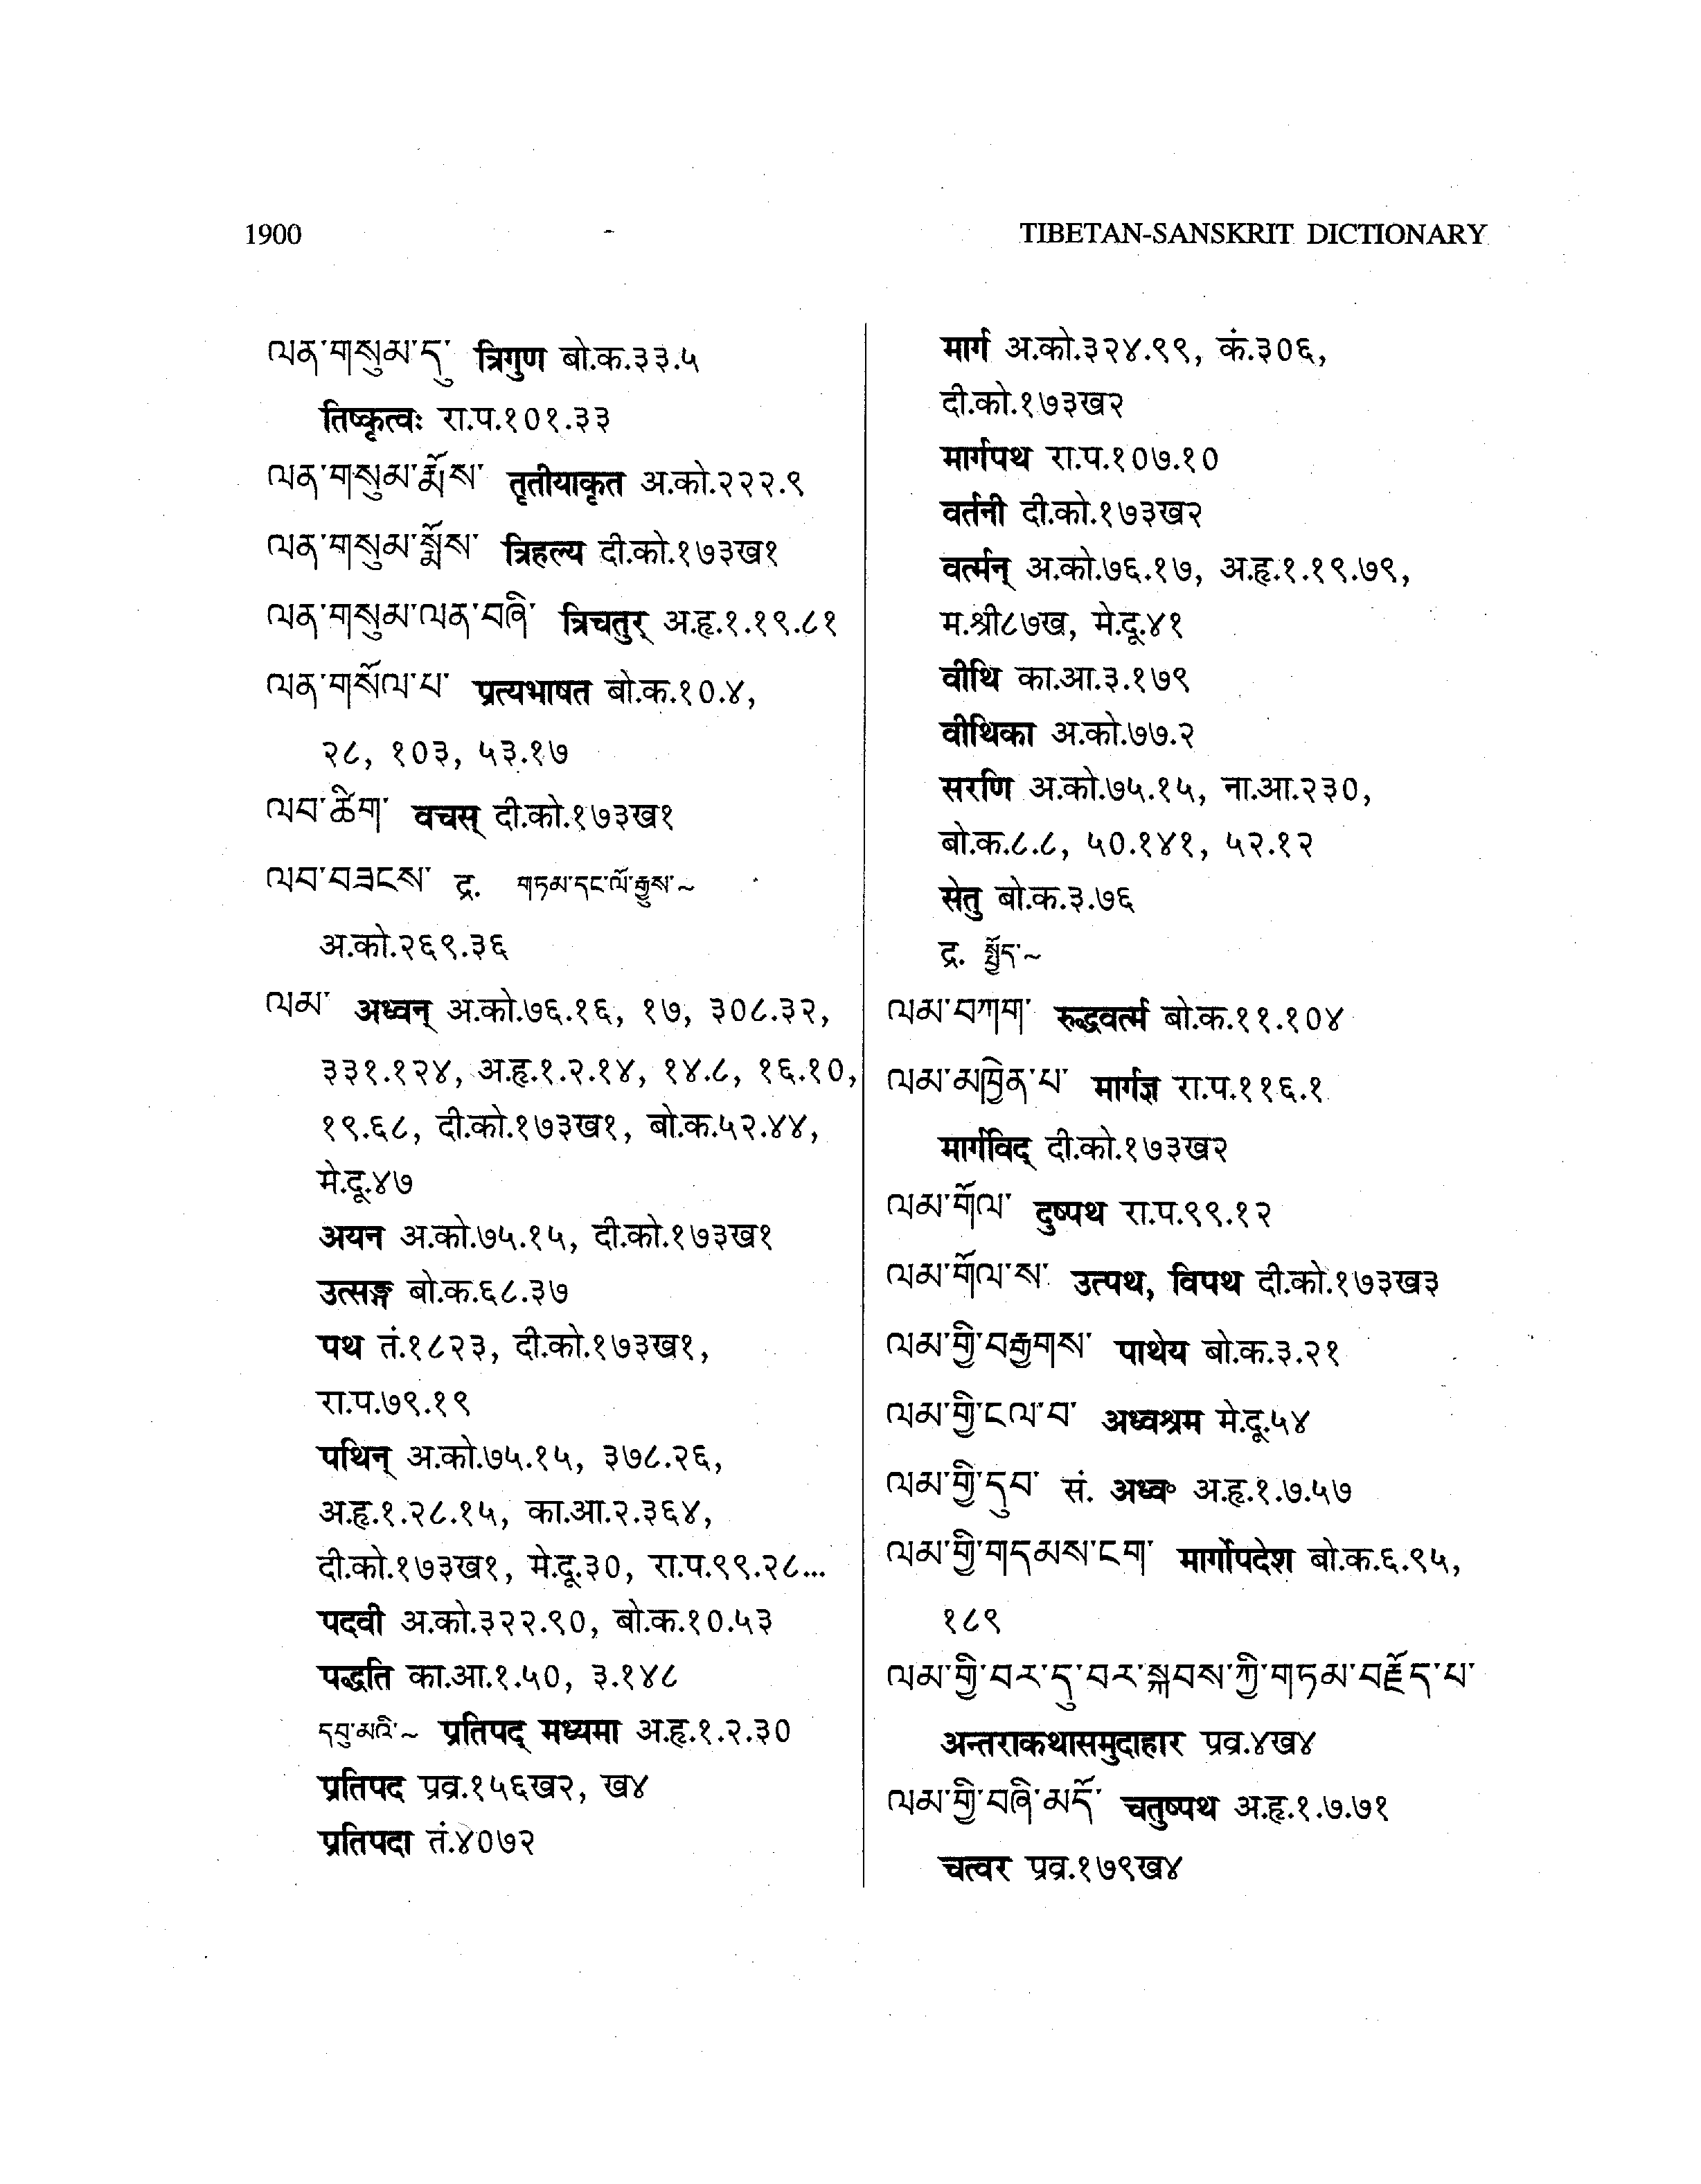 1900
TIBETAN-SANSKRIT DICTIONARY
ལན་གསུམ་དུ་ त्रिगुण बो.क.३३.५
तिष्कृत्वः रा.प.१०१.३३
ལན་གསུམ་རྨོས་ तृतीयाकृत अ.को.२२२.९
ལན་གསུམ་སློས་ त्रिहल्य दी.को.१७३ख१
ལན་གསུམ་ལན་བཞི་ त्रिचतुर् अ.हृ.१.१९.८१
ལན་གསོལ་པ་ प्रत्यभाषत बो.क.१०.४,
२८, १०३, ५३.१७
ལབ་ཚིག་ वचस् दी.को.१७३ख१
ལབ་བཟངས་ द्र. གཏམ་དང་ལོ་རྒྱུས་~
अ.को.२६९.३६
ལམ་ अध्वन् अ.को.७६.१६, १७, ३०८.३२,
३३१.१२४, अ.हृ.१.२.१४, १४.८, १६.१०,
१९.६८, दी.को.१७३ख१, बो.क.५२.४४,
मे.दू.४७
अयन अ.को.७५.१५, दी.को.१७३ख१
उत्सङ्ग बो.क.६८.३७
पथ तं.१८२३, दी.को.१७३ख१,
रा.प.७९.१९
पथिन् अ.को.७५.१५, ३७८.२६,
अ.हृ.१.२८.१५, का.आ.२.३६४,
दी.को.१७३ख१, मे.दू.३०, रा.प.९९.२८...
पदवी अ.को.३२२.९०, बो.क.१०.५३
पद्धति का.आ.१.५०, ३.१४८
དབུ་མའི་~ प्रतिपद् मध्यमा अ.हृ.१.२.३०
प्रतिपद प्रव्र.१५६ख२, ख४
प्रतिपदा तं.४०७२
मार्ग अ.को.३२४.९९, कं.३०६,
दी.को.१७३ख२
मार्गपथ रा.प.१०७.१०
वर्तनी दी.को.१७३ख२
वर्त्मन् अ.को.७६.१७, अ.हृ.१.१९.७९,
म.श्री८७ख, मे.दू.४१
वीथि का.आ.३.१७९
वीथिका अ.को.७७.२
सरणि अ.को.७५.१५, ना.आ.२३०,
बो.क.८.८, ५०.१४१, ५२.१२
सेतु बो.क.३.७६
द्र. སྤྱོད་~
ལམ་བཀག་ रुद्धवर्त्म बो.क.११.१०४
ལམ་མཁྱེན་པ་ मार्गज्ञ रा.प.११६.१
मार्गविद् दी.को.१७३ख२
ལམ་གོལ་ दुष्पथ रा.प.९९.१२
ལམ་གོལ་ས་ उत्पथ, विपथ दी.को.१७३ख३
ལམ་གྱི་བརྒྱགས་ पाथेय बो.क.३.२१
ལམ་གྱི་ངལ་བ་ अध्वश्रम मे.दू.५४
ལམ་གྱི་དུབ་ सं. अध्व॰ अ.हृ.१.७.५७
ལམ་གྱི་གདམས་ངག་ मार्गोपदेश बो.क.६.९५,
१८९
ལམ་གྱི་བར་དུ་བར་སྐབས་ཀྱི་གཏམ་བརྗོད་པ་
अन्तराकथासमुदाहार प्रव्र.४ख४
ལམ་གྱི་བཞི་མདོ་ चतुष्पथ अ.हृ.१.७.७१
चत्वर प्रव्र.१७९ख४